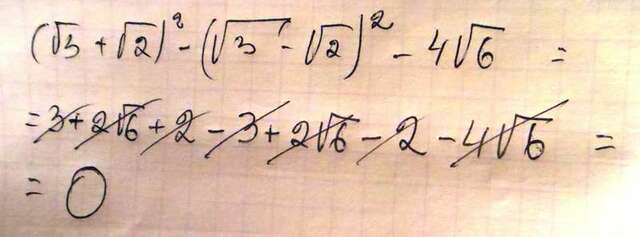 (√3 + √2)² - (√3 - √2)² - 4√6 =
= 3 + 2√6 + 2 - 3 + 2√6 - 2 - 4√6 =
= 0